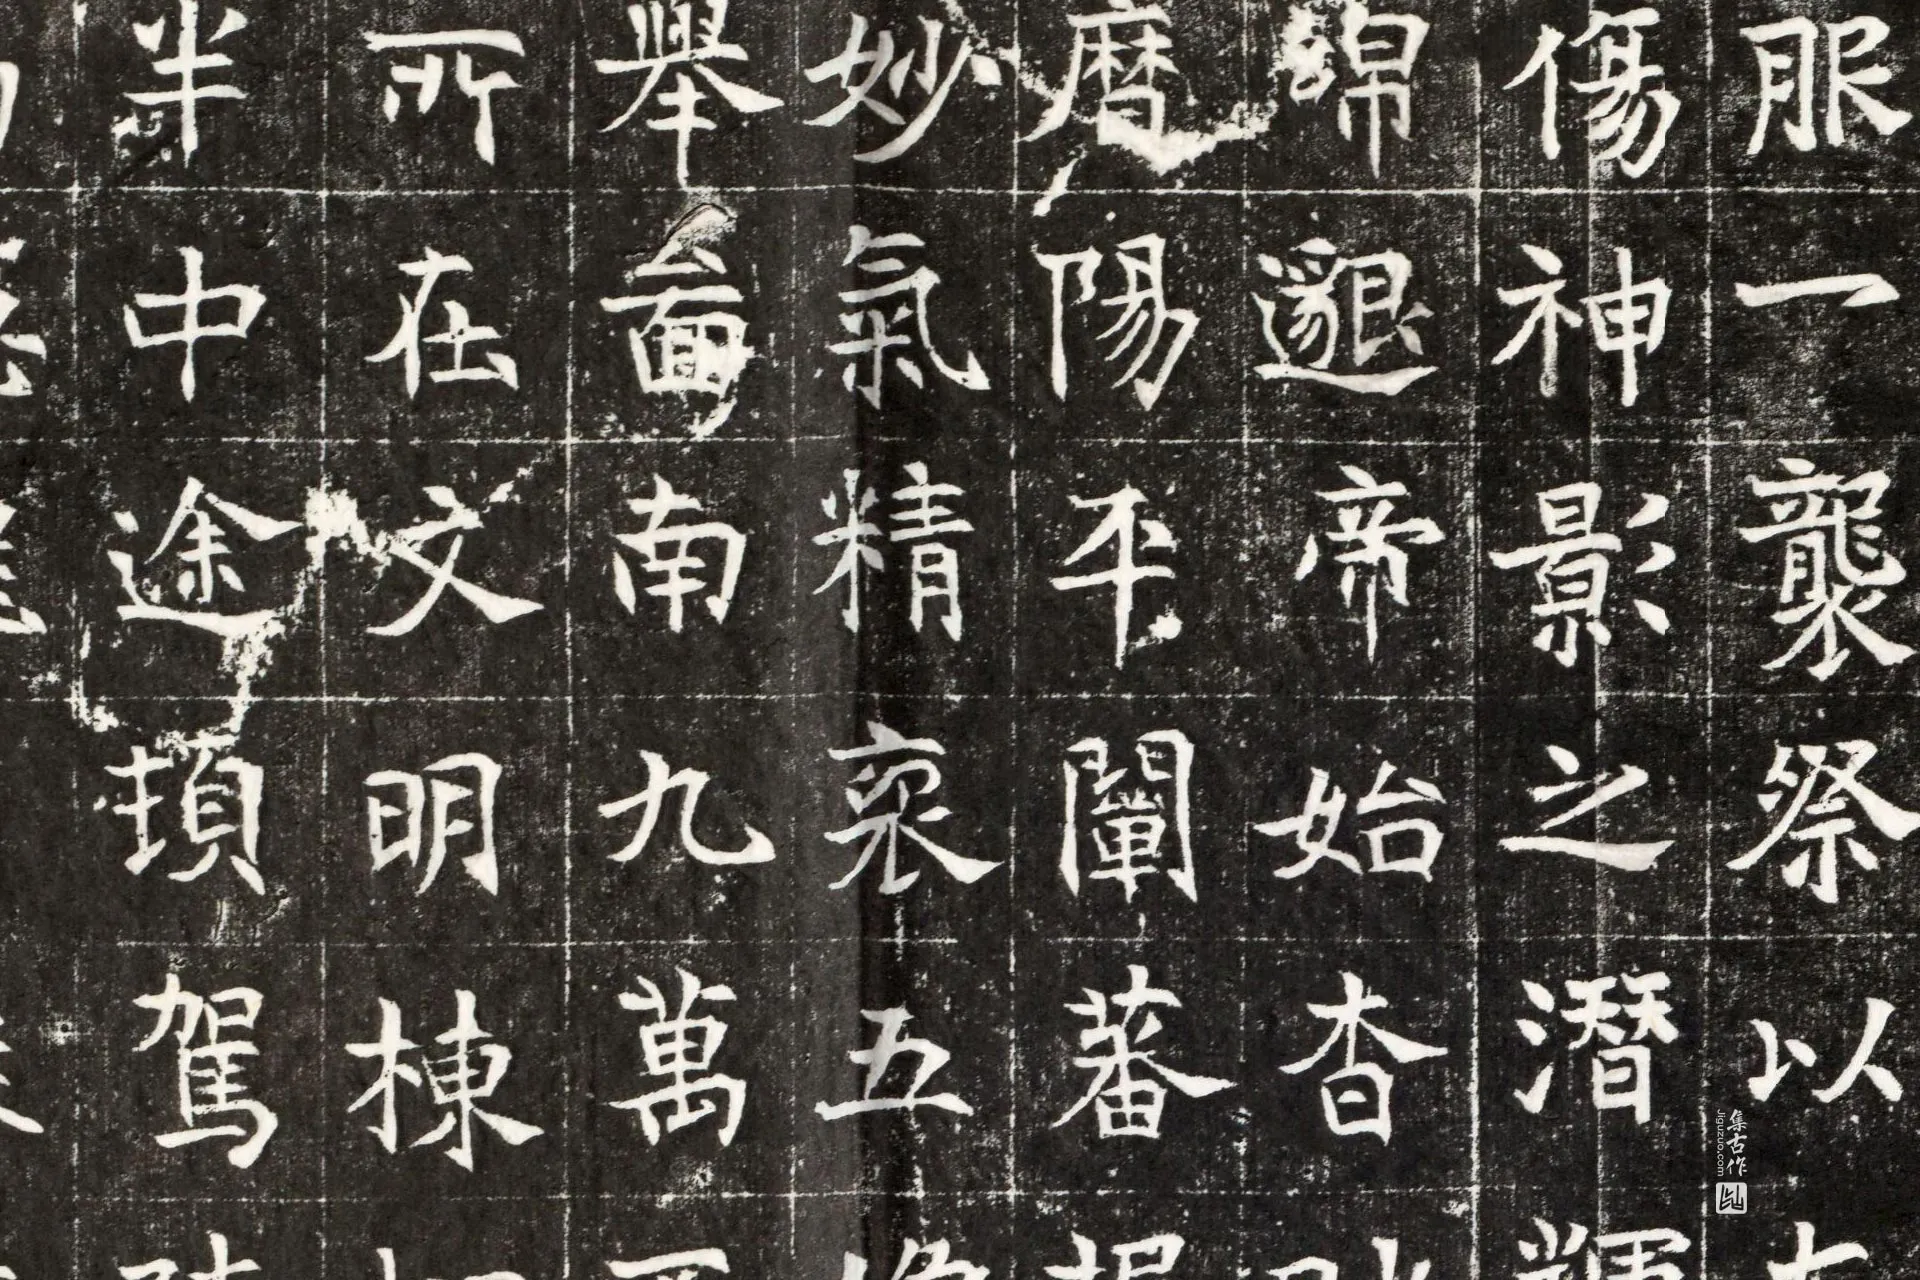 服一襲祭以
傷神影之潛輝
綿邈帝始杳
曆陽平闡蕃
妙氣精五
舉啚南九萬
所在文明棟
半中途頓駕
集古作
Jiguzuo.com